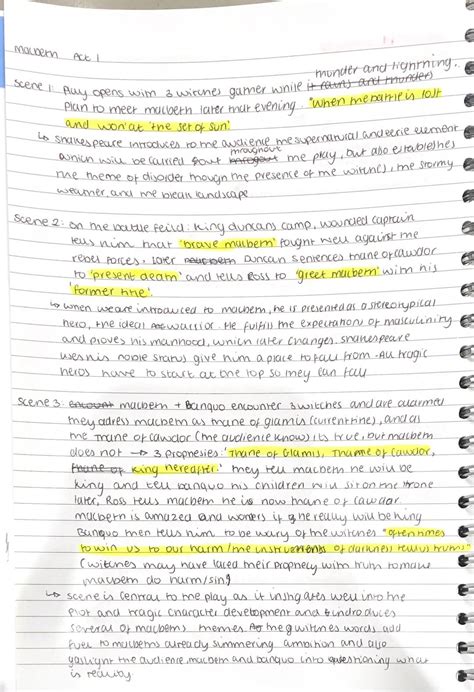 macbeth Act 1
thunder and lightning.
Scene 1: Play opens with 3 witches gather while it rains and thunders
plan to meet macbeth later that evening. 'When the battle is lost
and won' at 'the set of sun'.
↳ Shakespeare introduces to the audience the supernatural and eerie element
throughout
which will be carried the play, but also establishes
the theme of disorder though the presence of the witches, the stormy
weather, and the bleak landscape
Scene 2: on the battle feild: King duncans camp, wounded captain
tells him that 'brave macbeth' fought well against the
rebel forces. Later macbeth Duncan sentences thane of cawdor
to 'present death' and tells Ross to 'greet macbeth' with his
'former title'.
↳ when we are introduced to macbeth, he is presented as a stereotypical
hero, the ideal warrior. He fulfils the expectation of masculinity
and proves his manhood, which later changes. Shakespeare
uses his noble status give him a place to fall from. All tragic
heros have to start at the top so they can fall
Scene 3: encount macbeth + Banquo encounter 3 witches and are alarmed
they adress macbeth as thane of glamis (current title), and as
the Thane of cawdor (the audience know) its true, but macbeth
does not → 3 prophesies: 'Thane of Glamis, Thane of cawdor,
Thane of King hereafter.' They tell macbeth he will be
king and tell banquo his children will sit on the throne
later, Ross tells macbeth he is now thane of cawdor.
macbeth is amazed and wonders if he really will be king
Banquo then tells him to be wary of the witches "oftentimes
to win us to our harm/the instruments of darkness tell us truths"
(witches may have laced their prophecy with truth to make
macbeth do harm/sin)
↳ scene is central to the play as it instigates well into the
plot and tragic character development and introduces
several of macbeths themes. The witches words add
fuel to macbeths already simmering ambition and also
gaslight the audience, macbeth and banquo into questioning what
is reality